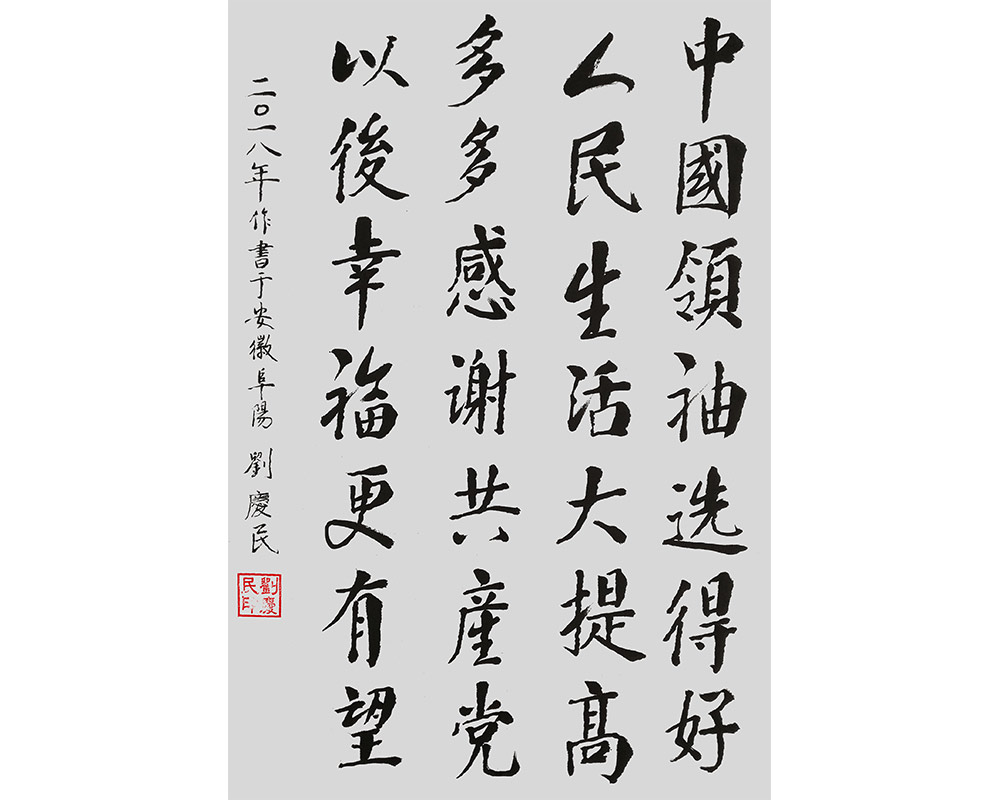 中國領袖选得好
人民生活大提高
多多感谢共產党
以後幸福更有望
二〇一八年作書于安徽阜陽 劉慶民
劉慶民印